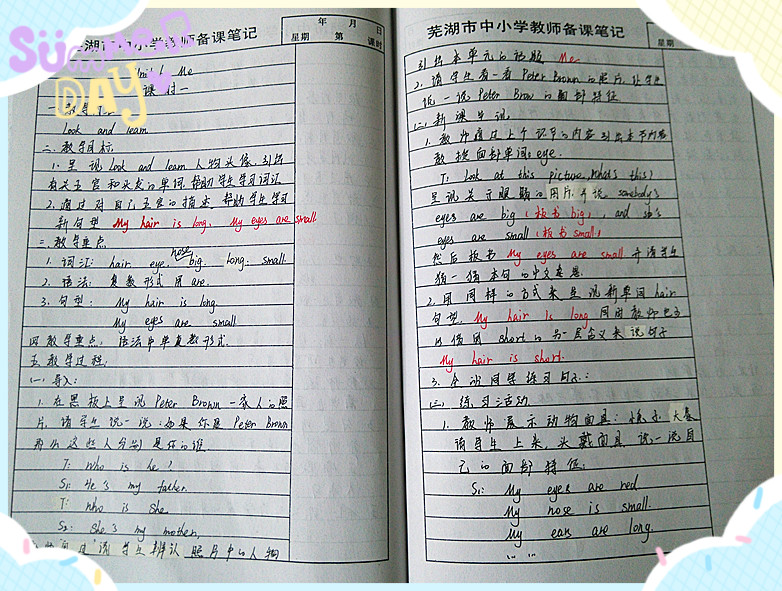 SUMMER DAY
芜湖市中小学教师备课笔记
年 月 日
星期 第 课时
Unit 1 Me
课时一
一、教学内容
Look and learn
二、教学目标
1. 呈现Look and learn 人物头像,引出
有关五官和头发的单词,帮助学生学习词汇
2. 通过对自己五官的描述,帮助学生学习
新句型 My hair is long. My eyes are small
三、教学重点
nose
1. 词汇: hair eye big long small
2. 语法: 复数形式用are.
3. 句型: My hair is long.
My eyes are small
四、教学难点: 语法中单复数形式.
五、教学过程:
(一) 导入:
1. 在黑板上呈现Peter Brown一家人的照
片,请学生说一说:如果你是Peter Brown
那么这些人分别是你的谁
T: Who is he?
S1: He's my father.
T: Who is she.
S2: She's my mother.
请学生辨认照片中的人物
芜湖市中小学教师备课笔记
星期
引出本单元的话题 Me
2. 请学生看一看Peter Brown的照片,让学生
说一说Peter Brow的面部特征
(二) 新课呈现
1. 教师通过上个环节的内容引出本节内容
教授面部单词: eye.
T: Look at this picture, What's this?
呈现关于眼睛的图片,并说 somebody's
eyes are big (板书 big), and sb's
eyes are small (板书 small)
然后板书 My eyes are small 并请学生
猜一猜本句的中文意思
2. 用同样的方式来呈现新单词hair
句型 My hair is long 同时教师也可
以借用short的另一层含义来说句子
My hair is short.
3. 全班同学练习句子:
(三) 练习活动
1. 教师展示动物面具: 兔子、大象
请学生上来,头戴面具,说一说自
己的面部特征:
S1: My eyes are red
My nose is small.
My ears are long.